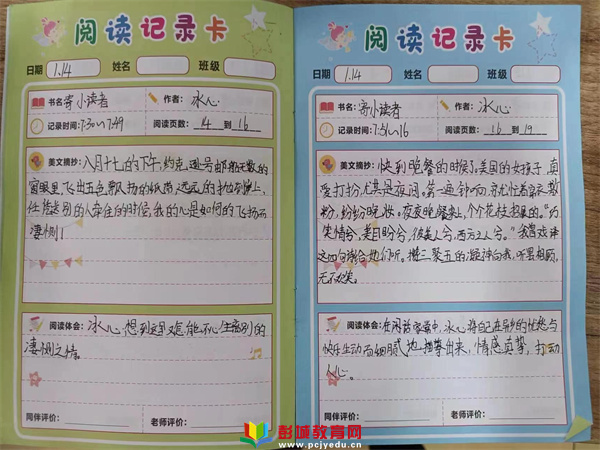 阅读记录卡
日期 1.14 姓名 班级
书名:寄小读者 作者:冰心
记录时间:7:30~7:49 阅读页数: 14 到 16
美文摘抄:八月十七的下午,约克逊号邮船无数的
窗眼里,飞出五色飘扬的纸带,远远的抛到岸上,
任凭送别的人牵住的时候,我的心是如何的飞扬而
凄恻!
阅读体会:冰心想到这里
凄恻之情。
同伴评价: 老师评价:
阅读记录卡
日期 1.14 姓名 班级
书名:寄小读者 作者:冰心
记录时间:7:51~16 阅读页数: 16 到 19
美文摘抄:快到晚餐的时候了,美国的女孩子,真
爱打扮,尤其是夜间。第一遍钟响,就忙着穿衣敷
粉,纷纷晚妆。夜夜晚餐桌上,个个花枝招展的。“巧
笑倩兮,美目盼兮,彼美人兮,西方之人兮。”我曾戏译
这四句诗给他们听。攒三聚五的凝神向我,听罢相顾,
无不欢笑。
阅读体会:在闲话家常中,冰心将自己在异乡的忧愁与
快乐生动而细腻地描摹出来,情感真挚,打动
人心。
同伴评价: 老师评价:
彭城教育网
www.pcjyedu.cn